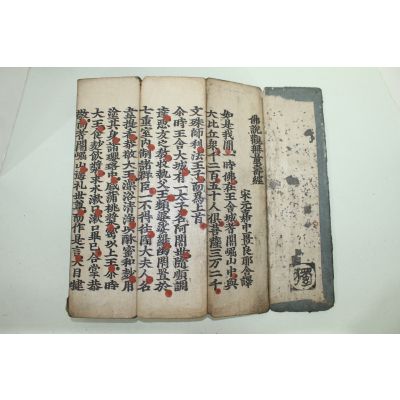 佛說觀無量壽經
宋元嘉中畺良耶舍譯
如是我聞一時佛在王舍城耆闍崛山中與
大比丘眾千二百五十人俱菩薩三萬二千
文殊師利法王子而爲上首
尒時王舍大城有一太子名阿闍世隨順調
達惡友之教收執父王頻婆娑羅幽閉置於
七重室內制諸群臣一不得往國大夫人名
韋提希恭敬大王澡浴清淨以酥蜜和麨用
塗其身諸瓔珞中盛蒲桃漿密以上王尒時
大王食麨飲漿求水漱口漱口畢已合掌恭
敬向耆闍崛山遥礼世尊而作是言大目揵